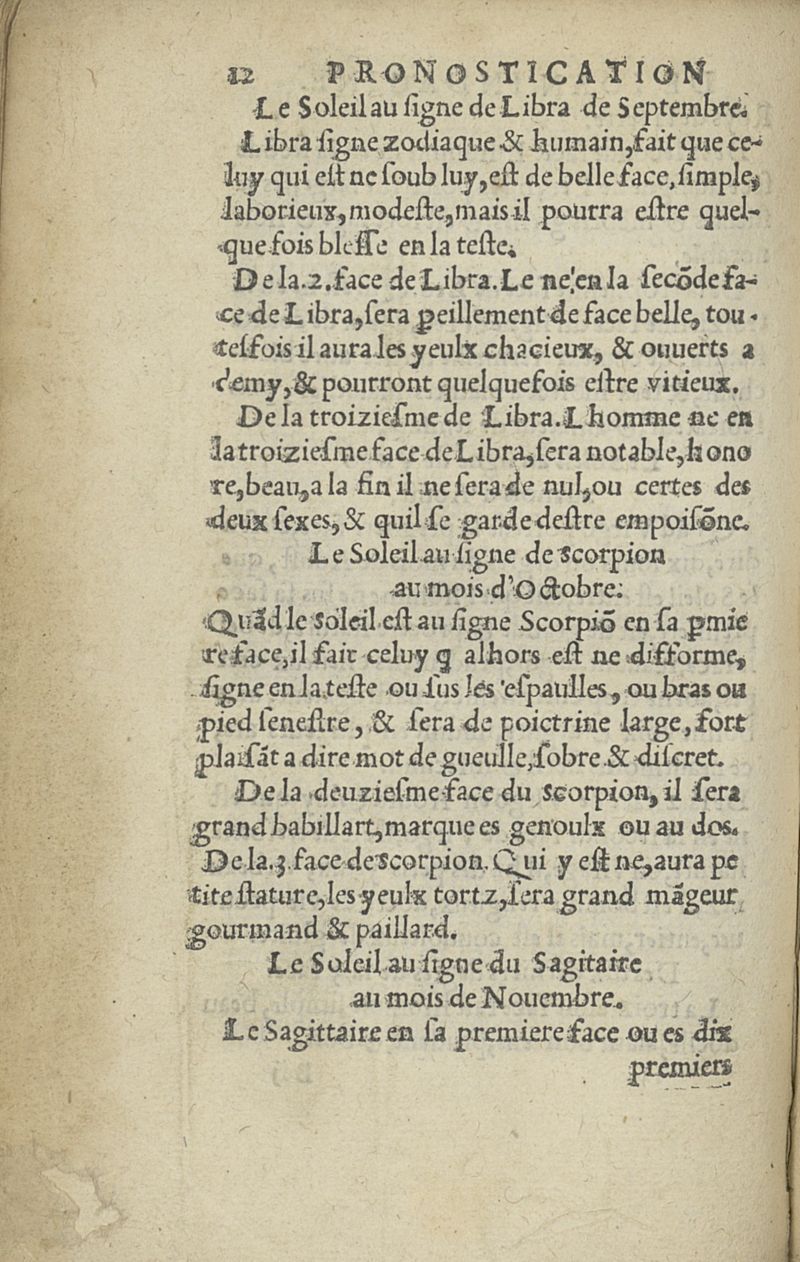 12 PRONOSTICATION
Le Soleil au ſigne de Libra de Septembre.
Libra ſigne zodiaque & humain, fait que ce-
luy qui eſt ne ſoub luy, eſt de belle face, ſimple,
laborieux, modeſte, mais il pourra eſtre quel-
que fois bleſſe en la teſte.
De la .2. face de Libra. Le ne' en la ſecõde fa-
ce de Libra, ſera peillement de face belle, tou-
teſfois il aura les yeulx chacieux, & ouuerts a
demy, & pourront quelquefois eſtre vitieux.
De la troizieſme de Libra. Lhomme ne en
la troizieſme face de Libra, ſera notable, hono
re, beau, a la fin il ne ſera de nul, ou certes des
deux ſexes, & quil ſe garde deſtre empoiſõne.
Le Soleil au ſigne de Scorpion
au mois d'Octobre.
Quãd le Soleil eſt au ſigne Scorpiõ en ſa pmie
re face, il fait celuy q alhors eſt ne difforme,
ſigne en la teſte ou ſus les 'eſpaulles, ou bras ou
pied ſeneſtre, & ſera de poictrine large, fort
plaiſãt a dire mot de gueulle, ſobre & diſcret.
De la deuzieſme face du Scorpion, il ſera
grand babillart, marque es genoulx ou au dos.
De la .3. face de Scorpion. Qui y eſt ne, aura pe
tite ſtature, les yeulx tortz, ſera grand mãgeur
gourmand & paillard.
Le Soleil au ſigne du Sagitaire
au mois de Nouembre.
Le Sagittaire en ſa premiere face ou es dix
premiers